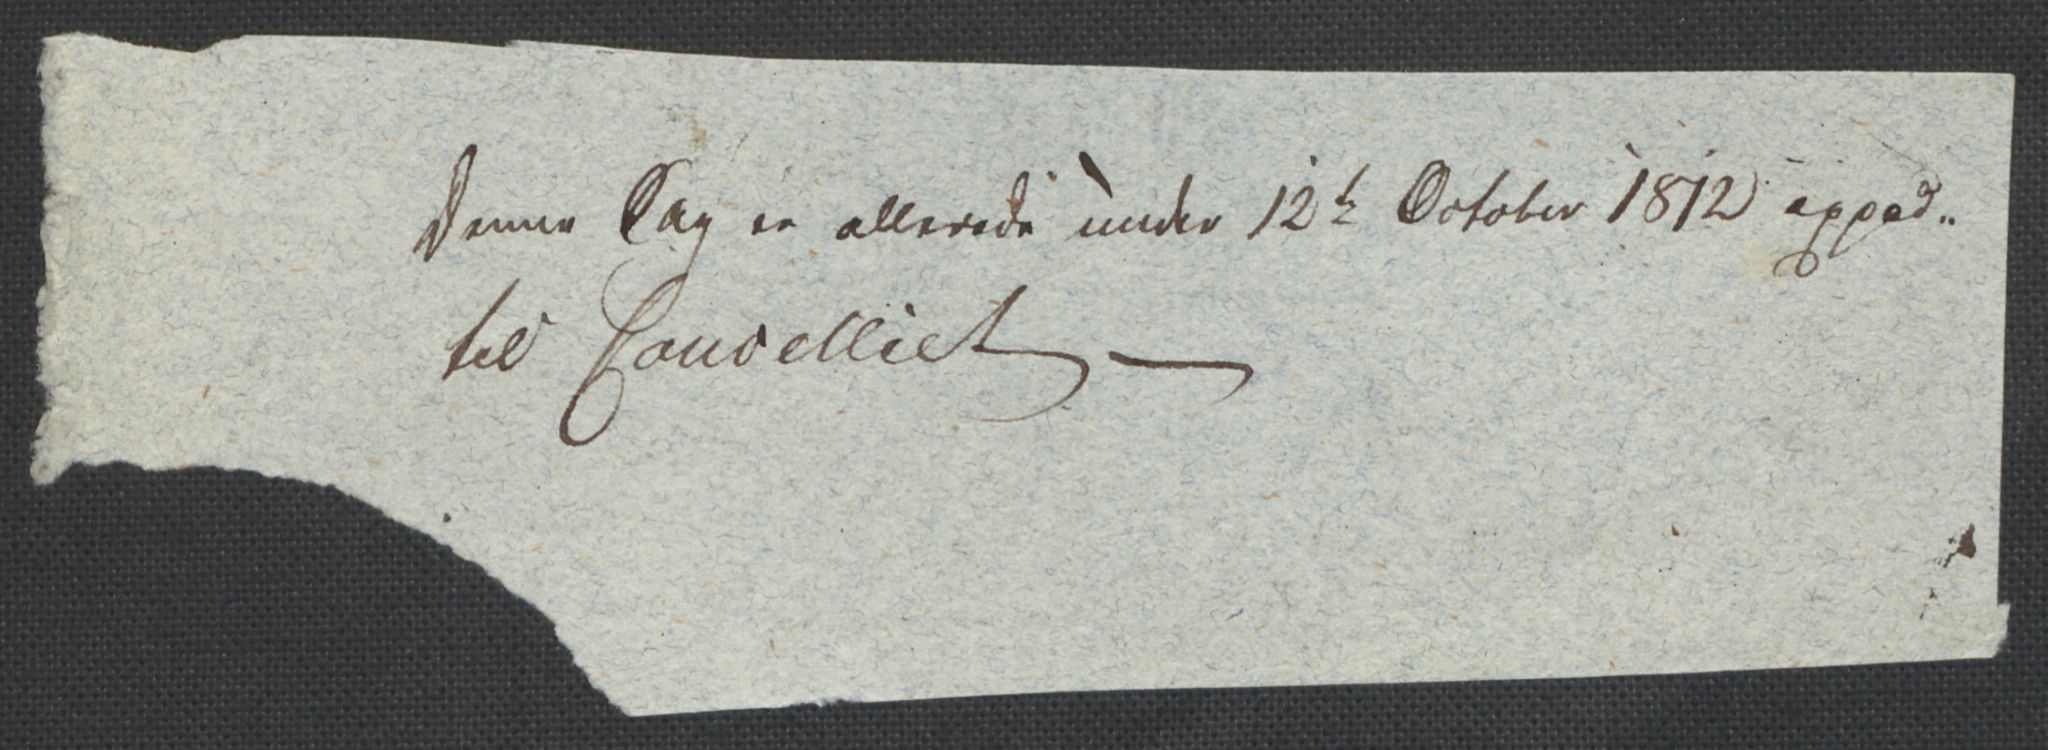 Denne Sag er allerede under 12te October 1812 exped..
til Cancelliet